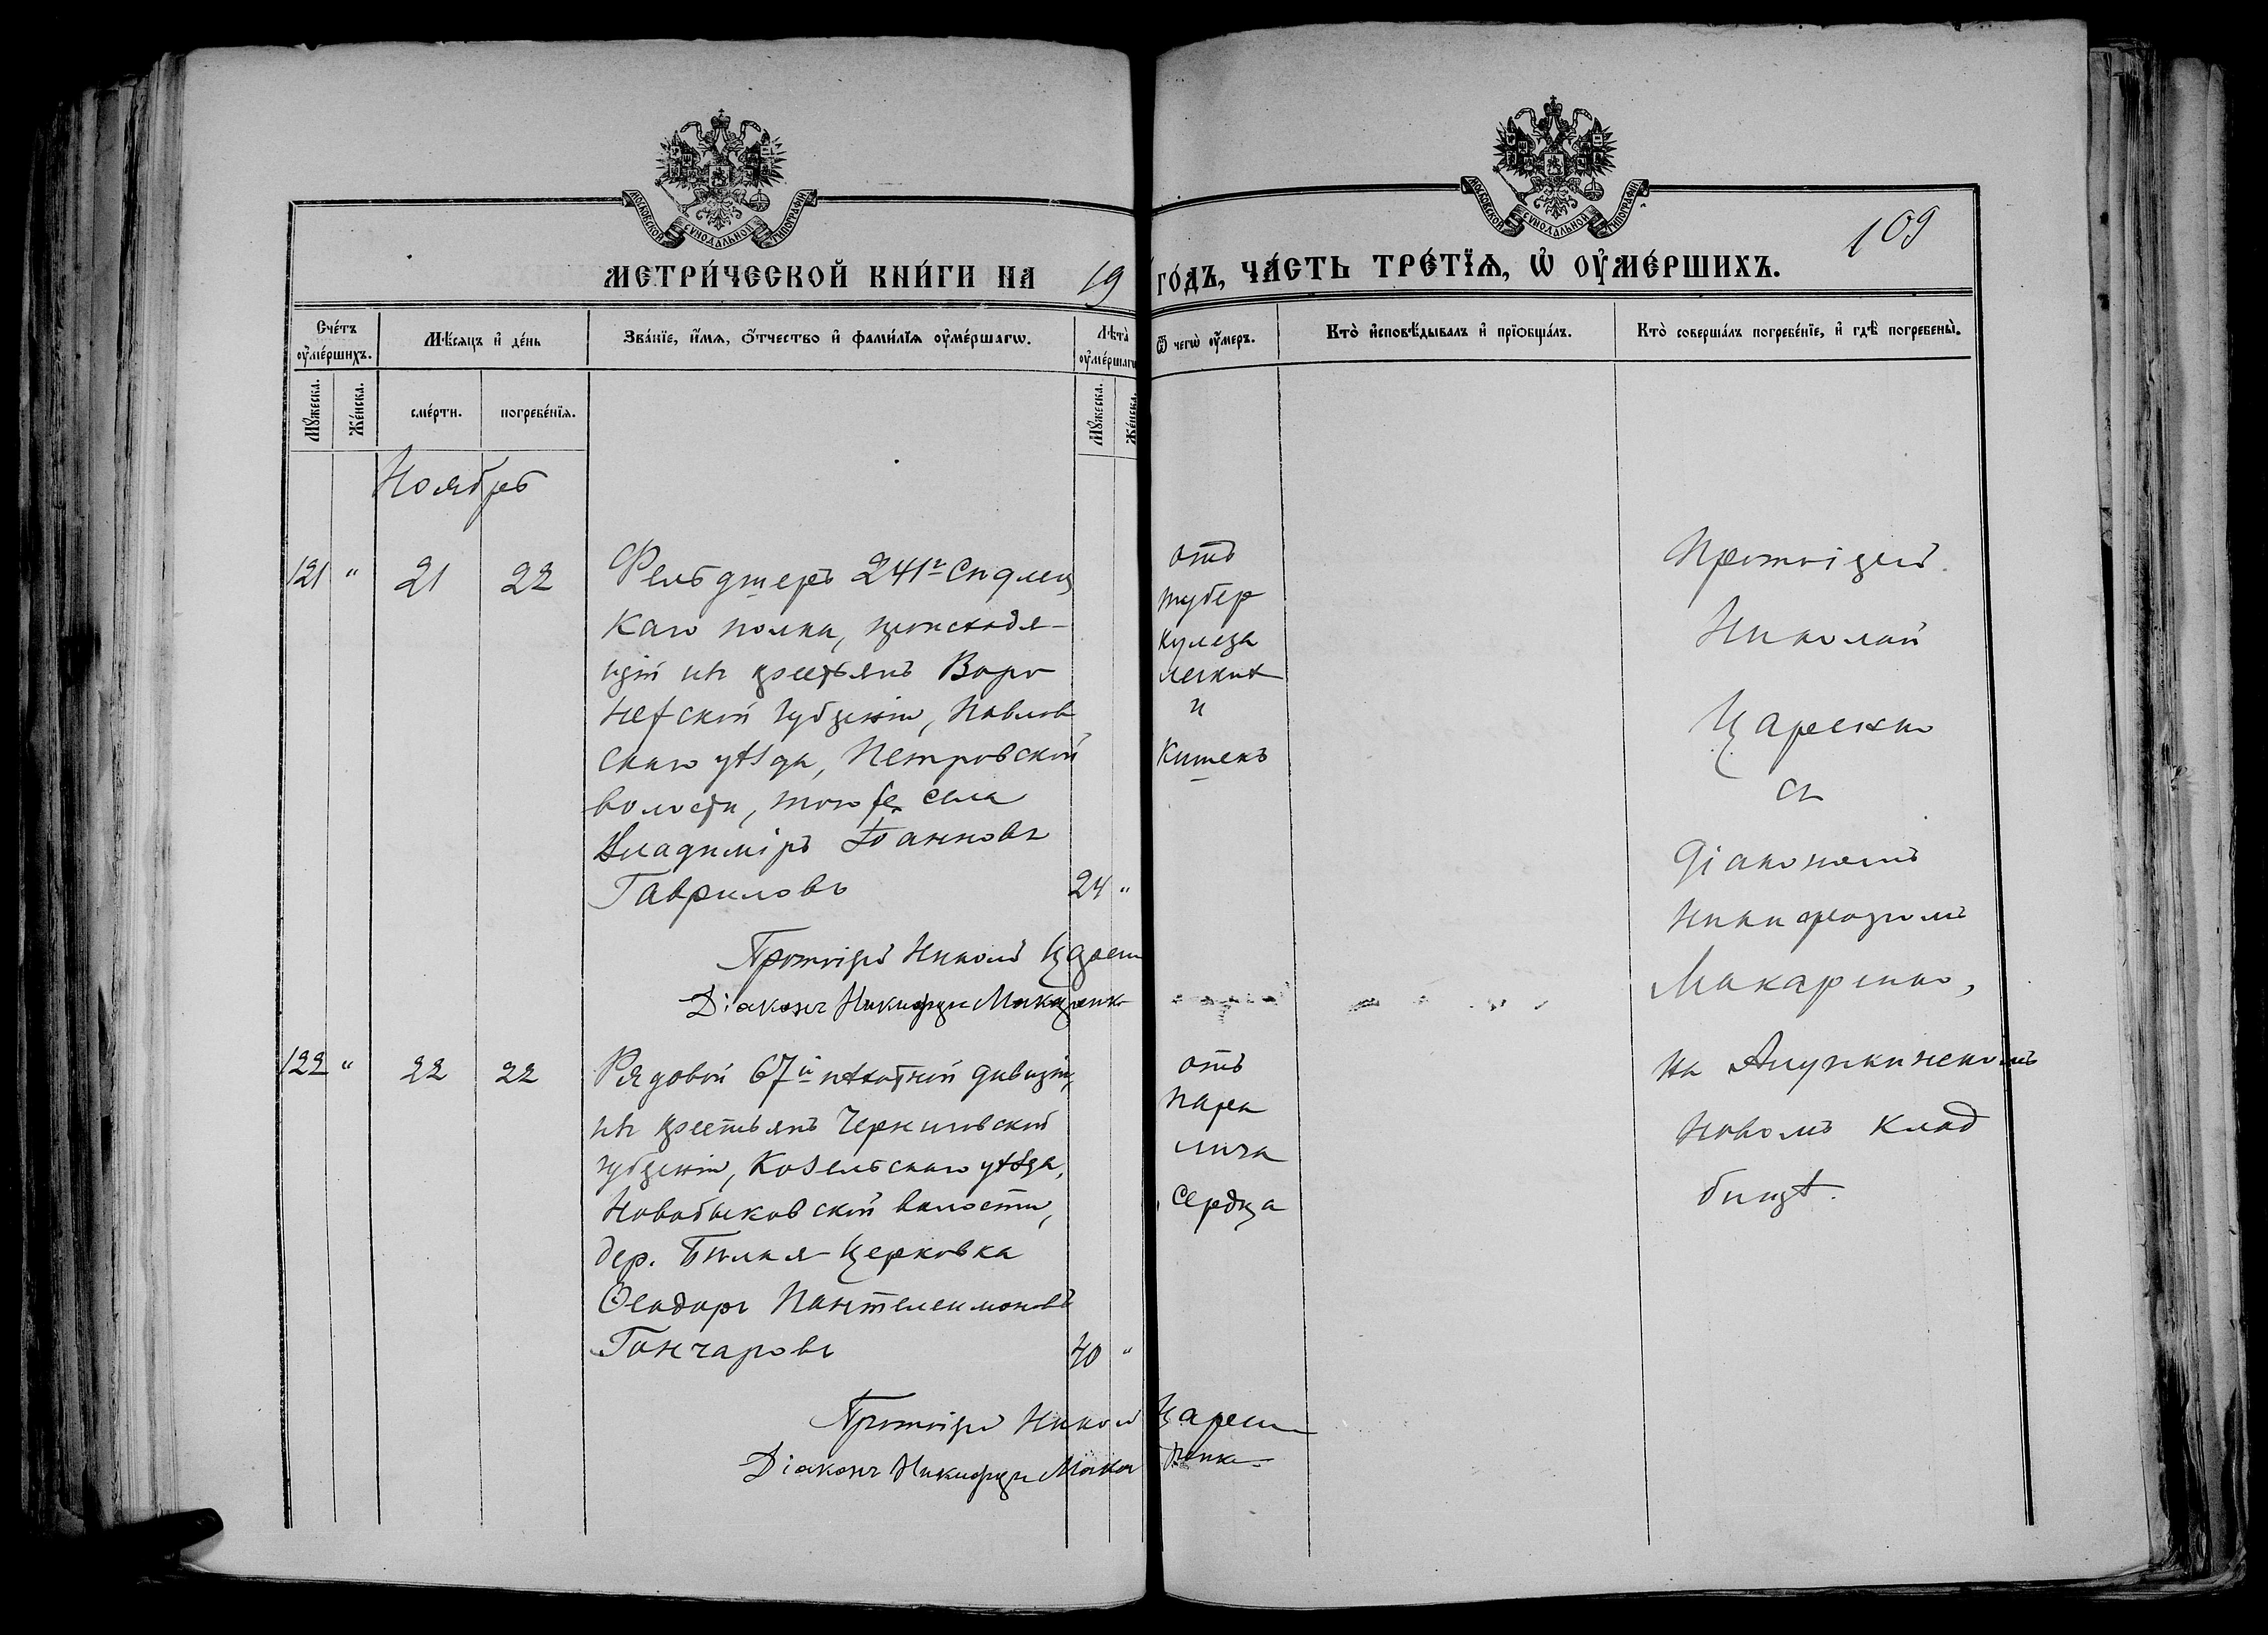 МОСКОВСКОЙ СУНОДАЛЬНОЙ ТИПОГРАФІИ
МОСКОВСКОЙ СУНОДАЛЬНОЙ ТИПОГРАФІИ
109
МЕТРИ́ЧЕСКОЙ КНИ́ГИ НА 19 ГО́ДЪ, ЧА́СТЬ ТРЕ́ТЇѦ, Ѡ҆ ОУ҆МЕ́РШИХЪ.
Сче́тъ оу҆ме́ршихъ.
Мѣ́сяцъ и҆ де́нь
Зва́нїе, и҆́мѧ, ѻ҆́тчество и҆ фами́лїѧ оу҆ме́ршагѡ.
Лѣ́та оу҆ме́ршагѡ
Ѿ чегѡ̀ оу҆́меръ.
Кто̀ и҆сповѣ́дывалъ и҆ прїѻбща́лъ.
Кто̀ соверша́лъ погребе́нїе, и҆ гдѣ̀ погребены̀.
Мꙋ́жеска.
Же́нска.
сме́рти.
погребе́нїѧ.
Мꙋ́жеска.
Же́нска.
Ноябрь
121 " 21 22 Фельдшеръ 241го Сѣдлец
каго полка, происходя-
щій изъ крестьянъ Воро
нежской губерніи, Павлов
скаго уѣзда, Петровской
волости, того же села
Владиміръ Іоанновъ
Гавриловъ 24 "
отъ
тубер
кулеза
легкихъ
и
кишекъ
Протоіерей
Николай
Царенко
съ
діакономъ
Никифоромъ
Макаренко,
на Алупкинскомъ
новомъ клад
бищѣ.
Протоіерей Николай Царен
Діаконъ Никифоръ Макаренко
122 " 22 22 Рядовой 67й пѣхотной дивизіи,
изъ крестьянъ Черниговской
губерніи, Козельскаго уѣзда,
Новобыковской волости,
дер. Бѣлая-Церковка
Ѳеодоръ Пантелеимоновъ
Гончаровъ 40 "
отъ
пара
лича
сердца
Протоіерей Николай Царен
Діаконъ Никифоръ Макаренко